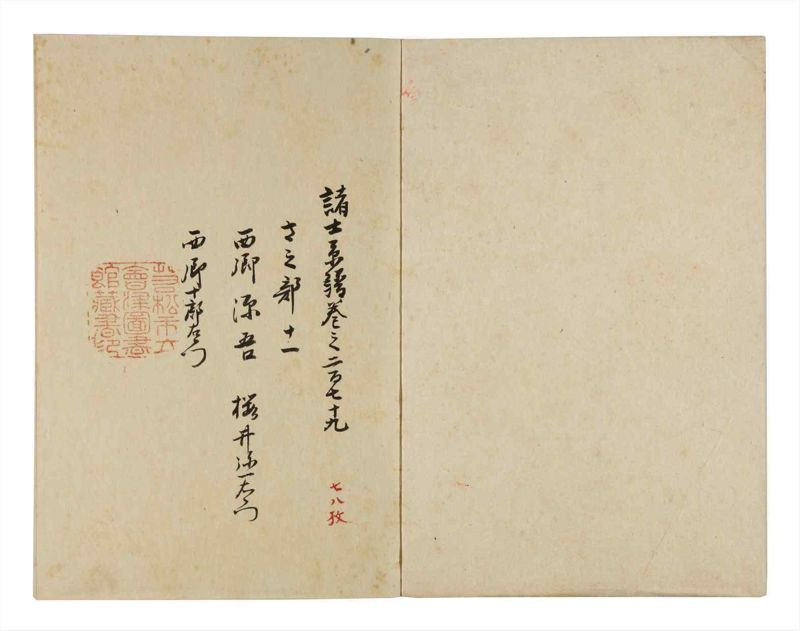 諸士系譜巻之二百七十九
七八枚
さ之部 十一
西郷源吾 桜井弥一右衛門
西郷十郎右衛門
若松市立
會津圖書
館藏書印